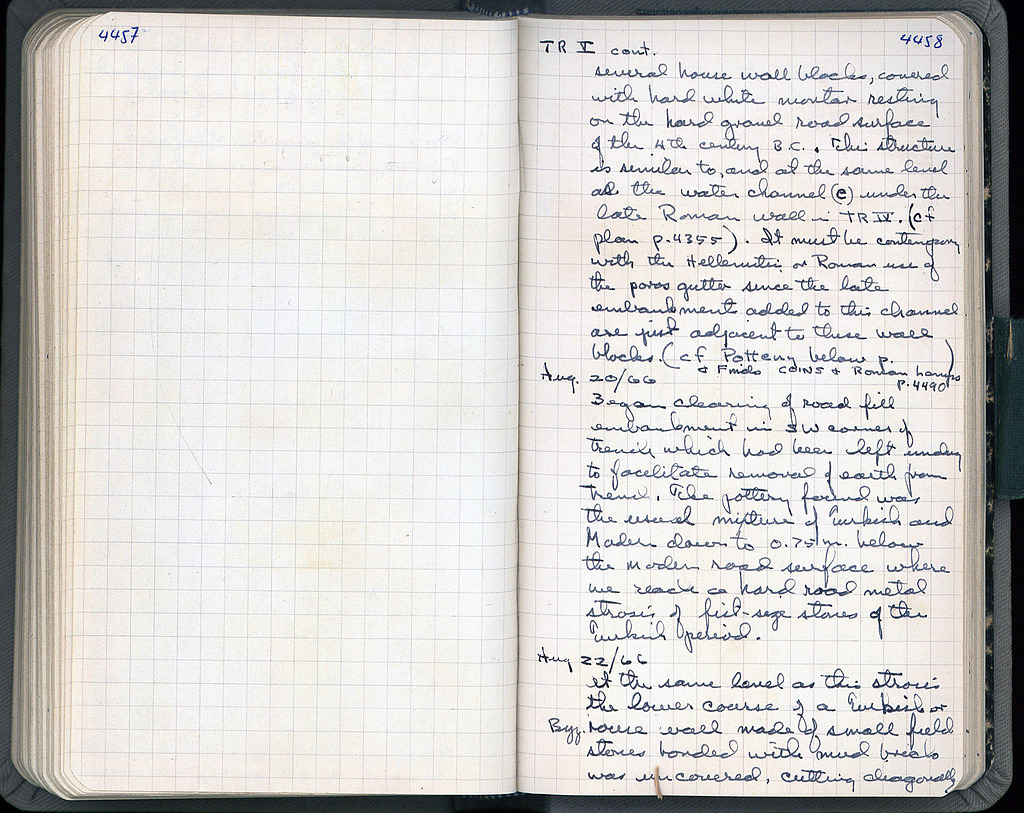 4457
4458
TR V cont.
several house wall blocks, covered
with hard white mortar resting
on the hard gravel road surface
of the 4th century B.C.. This structure
is similar to, and at the same level
as the water channel (e) under the
late Roman wall in TR IV. (cf
plan p. 4355). It must be contempory
with the Hellenistic or Roman use of
the poros gutter since the late
embankments added to this channel
are just adjacent to these wall
blocks. (cf Pottery below p. )
& Finds COINS & Roman lamps
p. 4490
Aug. 20/66
Began clearing of road fill
embankment in SW corner of
trench which had been left undug
to facelitate removal of earth from
trench. The pottery found was
the usual mixture of Turkish and
Modern down to 0.75 m. below
the modern road surface where
we reach a hard road metal
strosis of fist-size stones of the
Turkish period.
Aug 22/66
At the same level as this strosis
the lower course of a Turkish or
Byz. house wall made of small field
stones bonded with mud brick
was uncovered, cutting diagonally